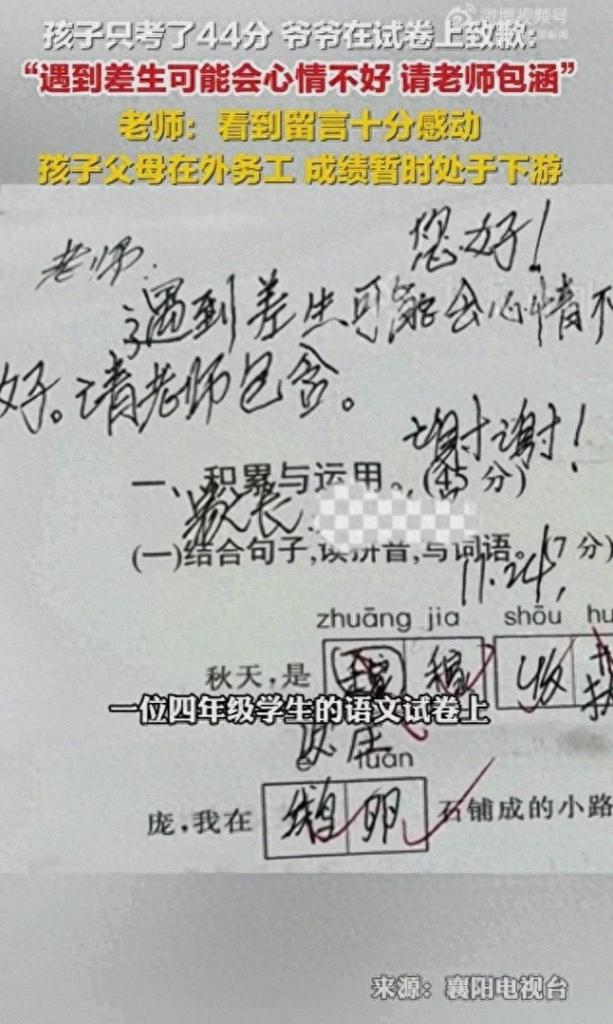 微博视频号
孩子只考了44分 爷爷在试卷上致歉:
“遇到差生可能会心情不好 请老师包涵”
老师：看到留言十分感动
孩子父母在外务工 成绩暂时处于下游
老师: 您好!
遇到差生可能会心情不
好。请老师包含。
谢谢!
一、积累与运用。(45分)
家长
(一)结合句子,读拼音,写词语。(7分)
11.24,
zhuāng jia shōu hu
秋天,是 稼 收
一位四年级学生的语文试卷上
é luǎn
庞,我在 鹅 卵 石铺成的小路
来源：襄阳电视台